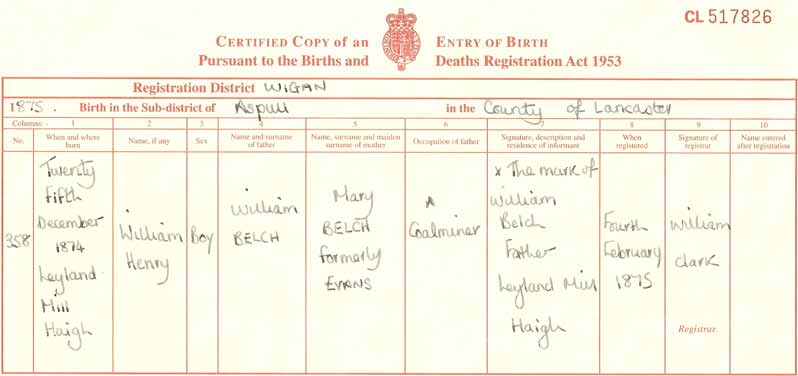 CL 517826
CERTIFIED COPY OF AN ENTRY OF BIRTH
Pursuant to the Births and Deaths Registration Act 1953
Registration District WIGAN
1875. Birth in the Sub-district of Aspull in the County of Lancaster
Columns:- 1 2 3 4 5 6 7 8 9 10
No.
When and where
born
Name, if any
Sex
Name and surname
of father
Name, surname and maiden
surname of mother
Occupation of father
Signature, description and
residence of informant
When
registered
Signature of
registrar
Name entered
after registration
358
Twenty
Fifth
December
1874
Leyland
Mill
Haigh
William
Henry
Boy
William
BELCH
Mary
BELCH
formerly
EVANS
A
Coalminer
x The mark of
William
Belch
Father
Leyland Mill
Haigh
Fourth
February
1875
William
Clark
Registrar.